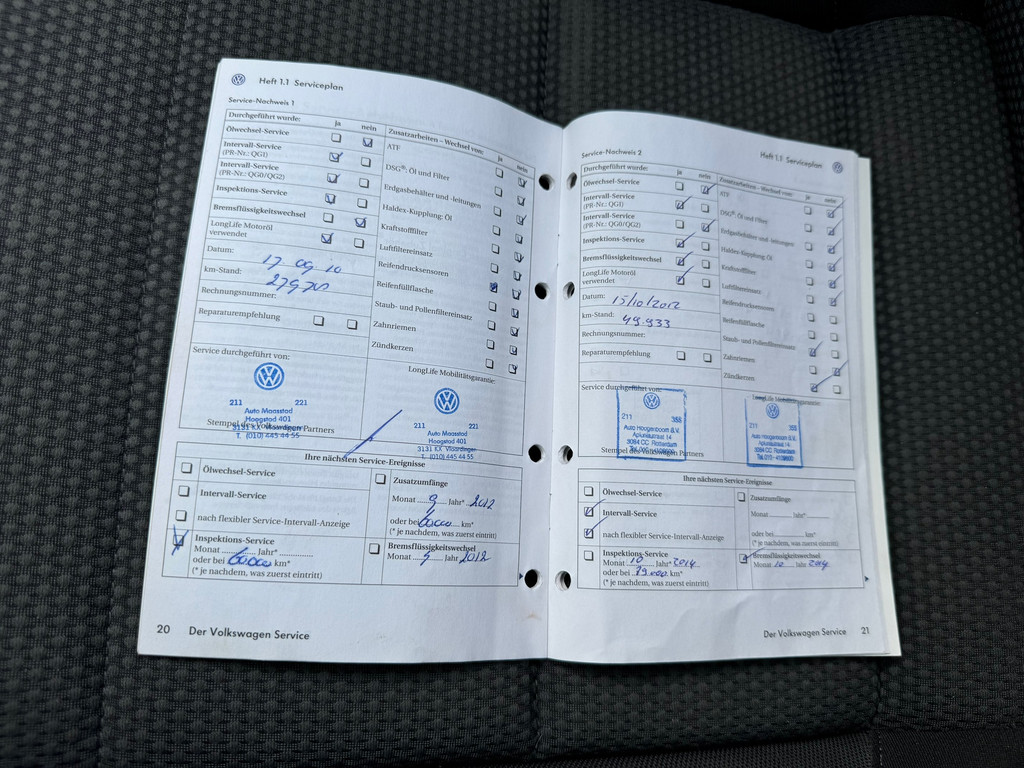 Heft 1.1 Serviceplan
Service-Nachweis 1
Durchgeführt wurde: ja nein
Ölwechsel-Service
Intervall-Service
(PR-Nr.: QG1)
Intervall-Service
(PR-Nr.: QG0/QG2)
Inspektions-Service
Bremsflüssigkeitswechsel
LongLife Motoröl
verwendet
Datum: 17 09 10
km-Stand:
Rechnungsnummer:
Reparaturempfehlung
Zusatzarbeiten – Wechsel von: ja nein
ATF
DSG®: Öl und Filter
Erdgasbehälter und -leitungen
Haldex-Kupplung: Öl
Kraftstofffilter
Luftfiltereinsatz
Reifendrucksensoren
Reifenfüllflasche
Staub- und Pollenfiltereinsatz
Zahnriemen
Zündkerzen
Service durchgeführt von:
211 221
Auto Maasstad
Hoogstad 401
3131 KX Vlaardingen
T. (010) 445 44 55
Stempel des Volkswagen Partners
LongLife Mobilitätsgarantie:
211 221
Auto Maasstad
Hoogstad 401
3131 KX Vlaardingen
T. (010) 445 44 55
Ihre nächsten Service-Ereignisse
Ölwechsel-Service
Intervall-Service
nach flexibler Service-Intervall-Anzeige
Inspektions-Service
Monat ............ Jahr* ............
oder bei 60000 km*
(* je nachdem, was zuerst eintritt)
Zusatzumfänge
Monat 9 Jahr* 2012
oder bei 60000 km*
(* je nachdem, was zuerst eintritt)
Bremsflüssigkeitswechsel
Monat 9 Jahr 2012
20 Der Volkswagen Service
Heft 1.1 Serviceplan
Service-Nachweis 2
Durchgeführt wurde: ja nein
Ölwechsel-Service
Intervall-Service
(PR-Nr.: QG1)
Intervall-Service
(PR-Nr.: QG0/QG2)
Inspektions-Service
Bremsflüssigkeitswechsel
LongLife Motoröl
verwendet
Datum: 15/10/2012
km-Stand: 49.933
Rechnungsnummer:
Reparaturempfehlung
Zusatzarbeiten – Wechsel von: ja nein
ATF
DSG®: Öl und Filter
Erdgasbehälter und -leitungen
Haldex-Kupplung: Öl
Kraftstofffilter
Luftfiltereinsatz
Reifendrucksensoren
Reifenfüllflasche
Staub- und Pollenfiltereinsatz
Zahnriemen
Zündkerzen
Service durchgeführt von:
211 355
Auto Hoogenboom B.V.
Aploniusstraat 14
3084 CC Rotterdam
Stempel des Volkswagen Partners
LongLife Mobilitätsgarantie:
211 355
Auto Hoogenboom B.V.
3084 CC Rotterdam
Ihre nächsten Service-Ereignisse
Ölwechsel-Service
Intervall-Service
nach flexibler Service-Intervall-Anzeige
Inspektions-Service
Monat 10 Jahr* 2014
oder bei 79.000 km*
(* je nachdem, was zuerst eintritt)
Zusatzumfänge
Monat ............ Jahr* ............
oder bei ............ km*
(* je nachdem, was zuerst eintritt)
Bremsflüssigkeitswechsel
Monat 10 Jahr 2014
Der Volkswagen Service 21